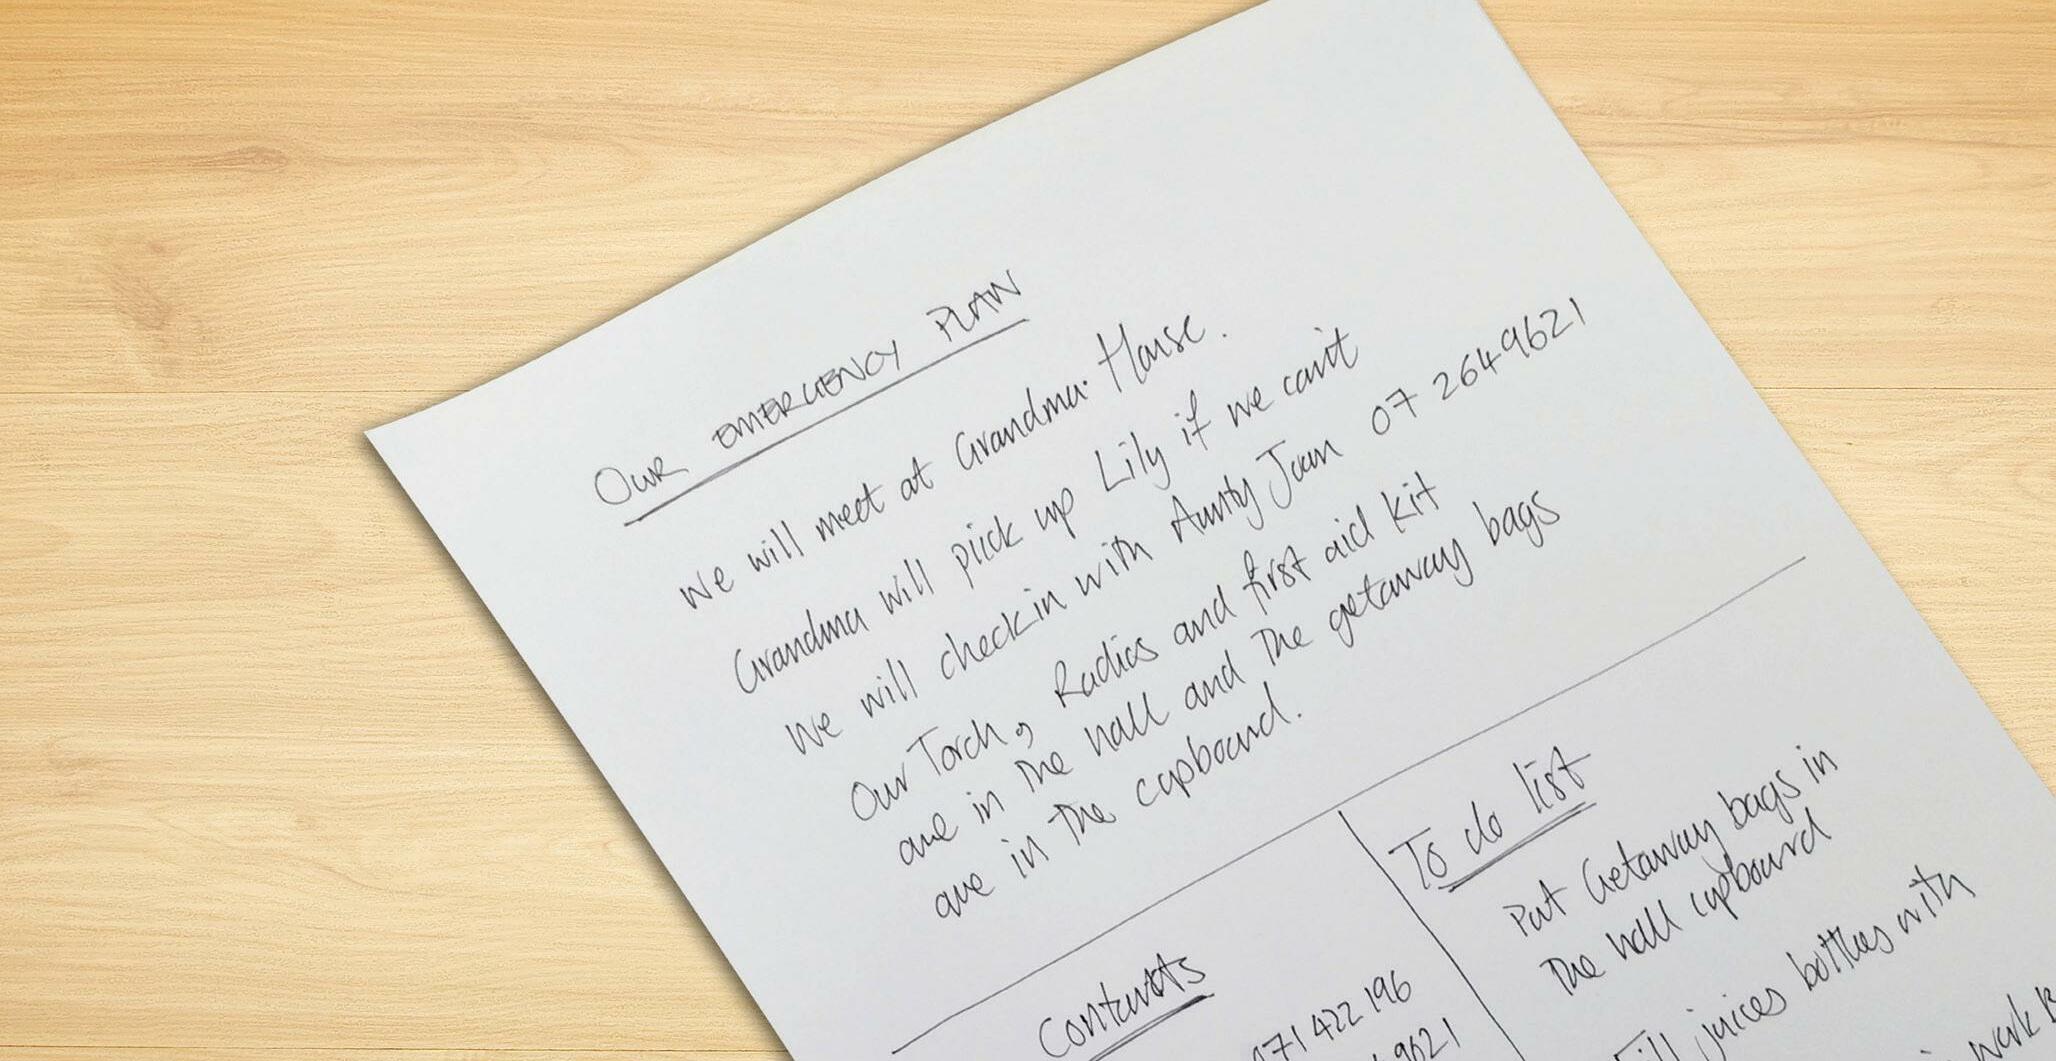 OUR EMERGENCY PLAN
We will meet at Grandma House.
Grandma will piick up Lily if we can't
We will checkin with Aunty Joan 07 2649621
Our Torch, Radios and first aid kit
are in the hall and the getaway bags
are in the cupboard.
Contacts
71 422 196
9621
To do list
Put Getaway bags in
the hall cupboard
Fill juices bottles with
work